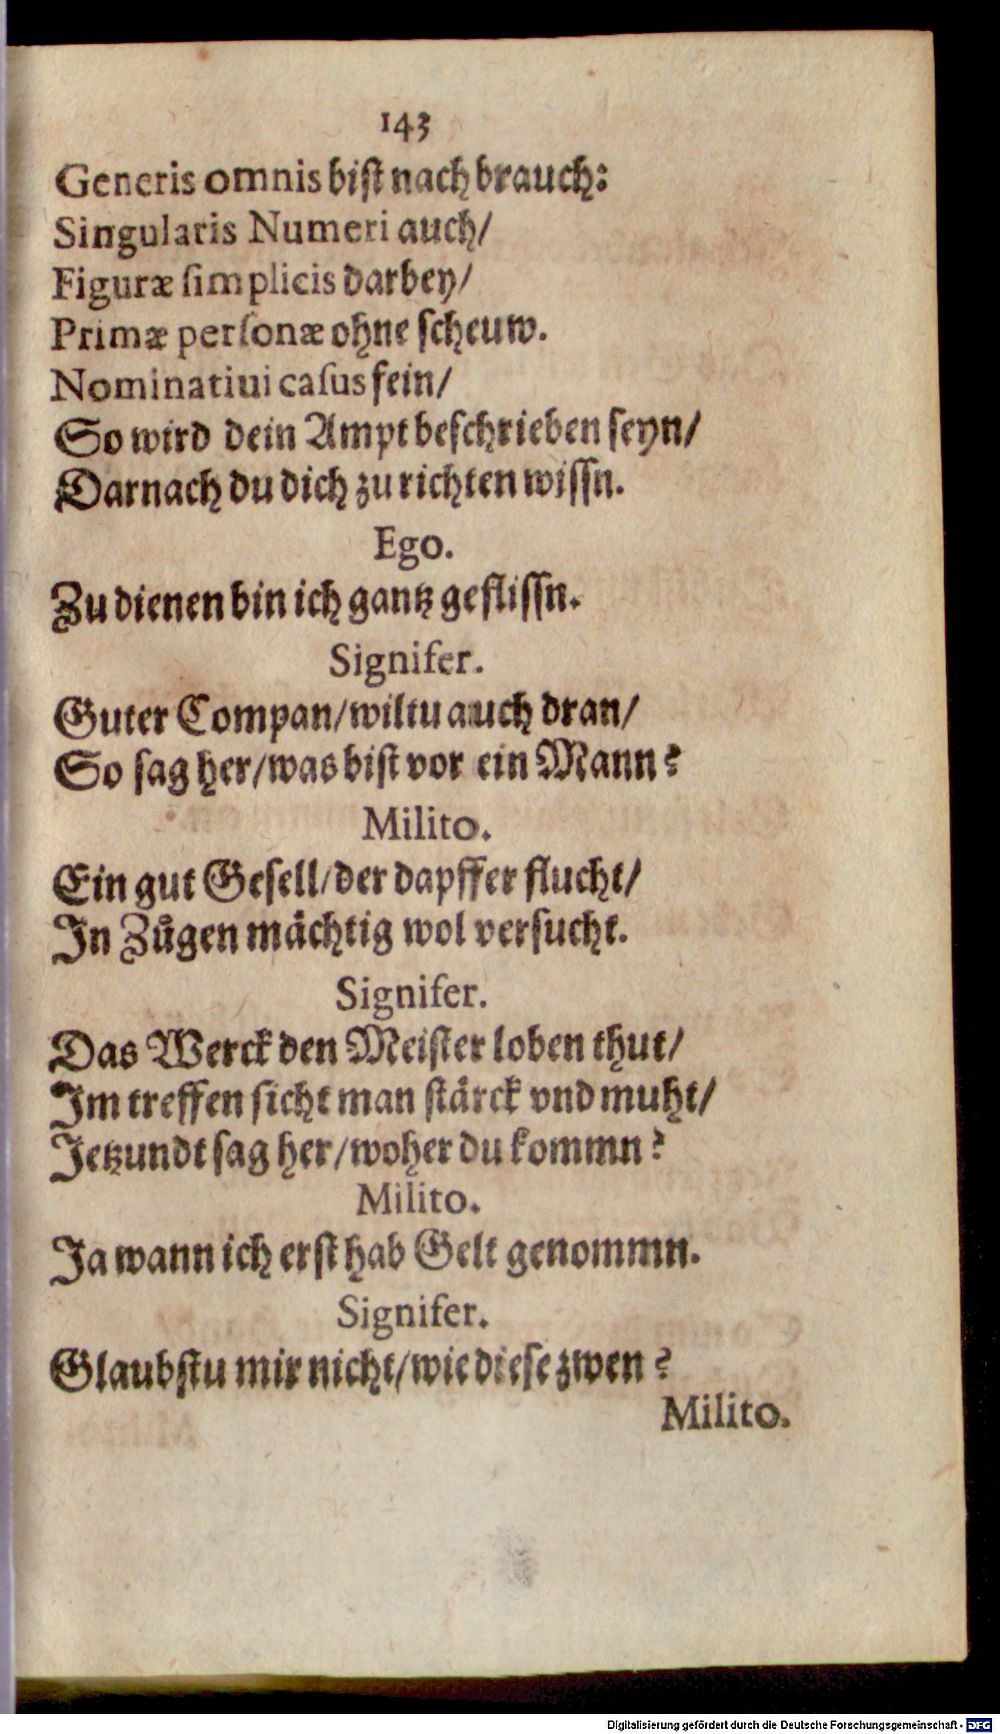 143
Generis omnis bist nach brauch:
Singularis Numeri auch/
Figuræ simplicis darbey/
Primæ personæ ohne scheuw.
Nominatiui casus fein/
So wird dein Ampt beschrieben seyn/
Darnach du dich zu richten wissn.
Ego.
Zu dienen bin ich gantz geflissn.
Signifer.
Guter Compan/wiltu auch dran/
So sag her/was bist vor ein Mann?
Milito.
Ein gut Gesell/der dapffer flucht/
In Zügen mächtig wol versucht.
Signifer.
Das Werck den Meister loben thut/
Im treffen sicht man stärck vnd muht/
Jetzundt sag her/woher du kommn?
Milito.
Ja wann ich erst hab Gelt genommn.
Signifer.
Glaubstu mir nicht/wie diese zwen?
Milito.
Digitalisierung gefördert durch die Deutsche Forschungsgemeinschaft - DFG